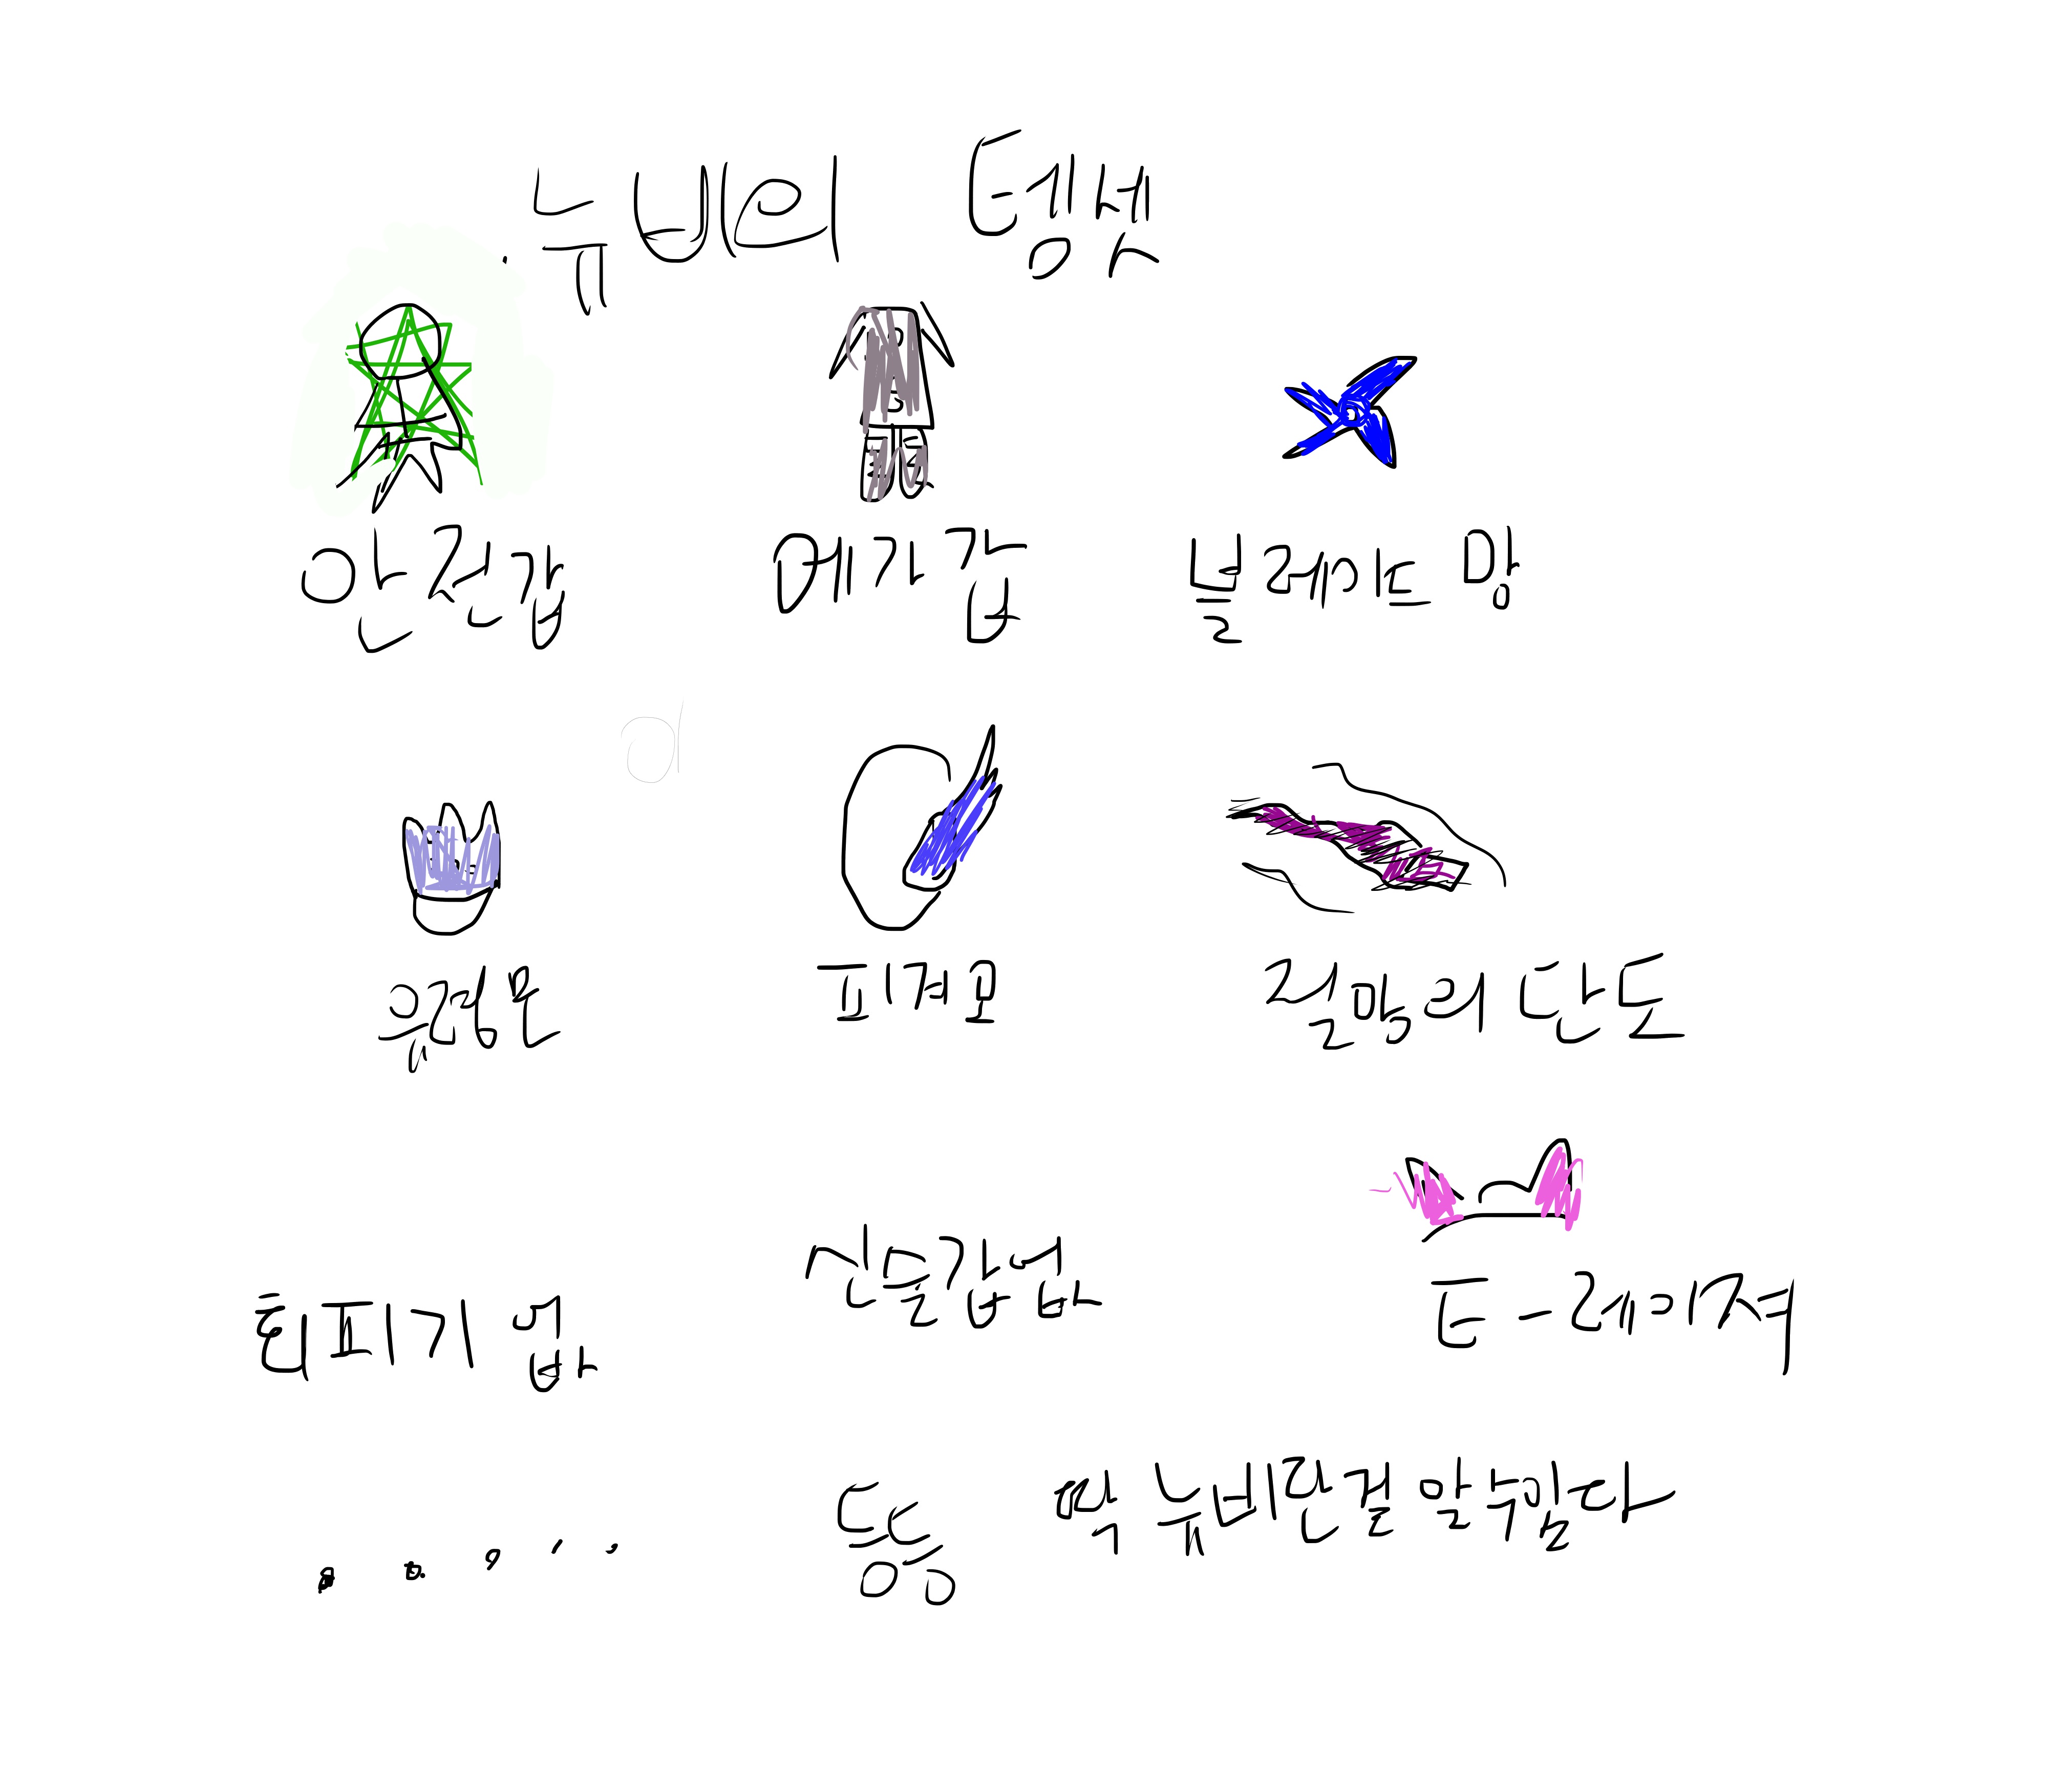 뉴비의 템셋
안전갑 메가갑 블레이드 망
유령몬 피격모 절망의 단도
회피기 없 신술갑 없 E-레콰져
등등 딱 뉴비란걸 알 수 있다